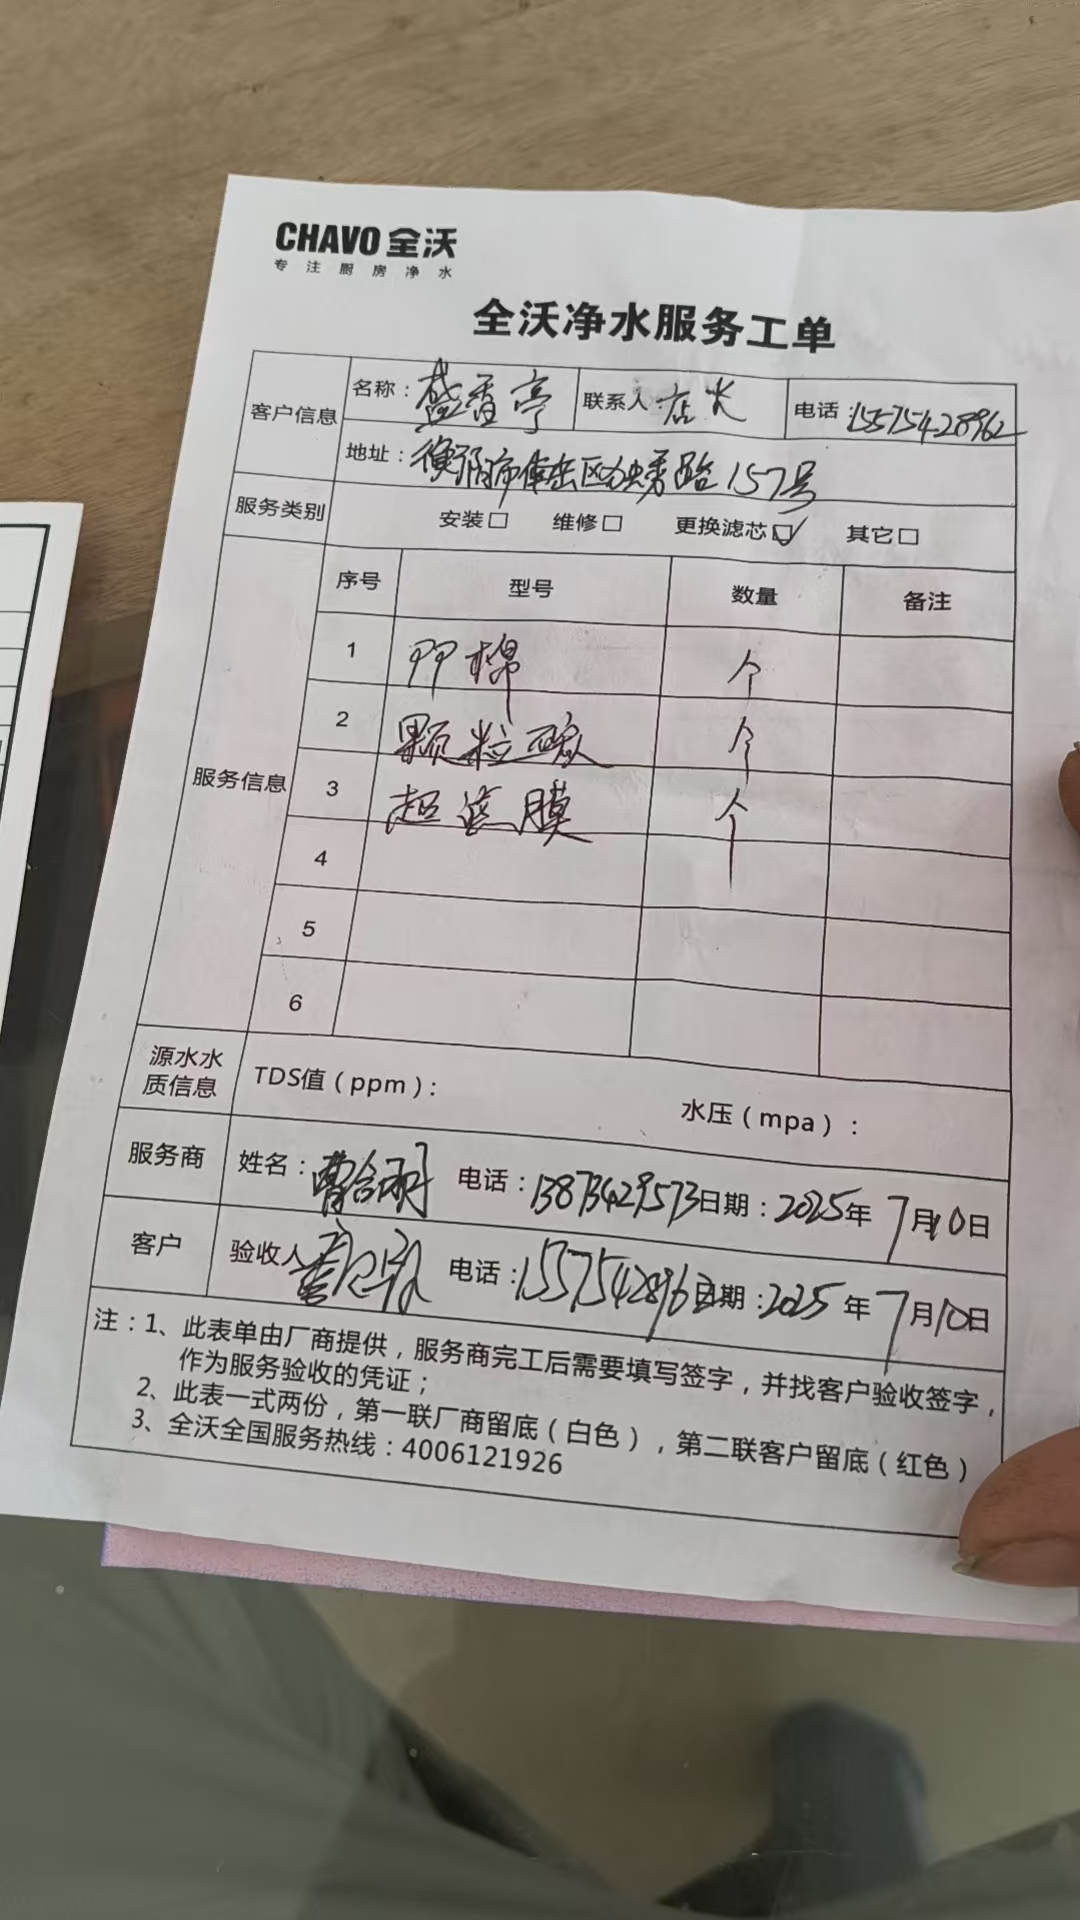 CHAVO 全沃
专注厨房净水
全沃净水服务工单
客户信息 名称：盛香亭 联系人：店长 电话：15575428962
地址：衡阳市 区 路157号
服务类别 安装□ 维修□ 更换滤芯☑ 其它□
服务信息 序号 型号 数量 备注
1 PP棉 个
2 颗粒碳 个
3 超滤膜 个
4
5
6
源水水质信息 TDS值（ppm）： 水压（mpa）：
服务商 姓名：曹 电话：13873429573 日期：2025年7月10日
客户 验收人 电话：15575428962 日期：2025年7月10日
注：1、此表单由厂商提供，服务商完工后需要填写签字，并找客户验收签字，
作为服务验收的凭证；
2、此表一式两份，第一联厂商留底（白色），第二联客户留底（红色）
3、全沃全国服务热线：4006121926